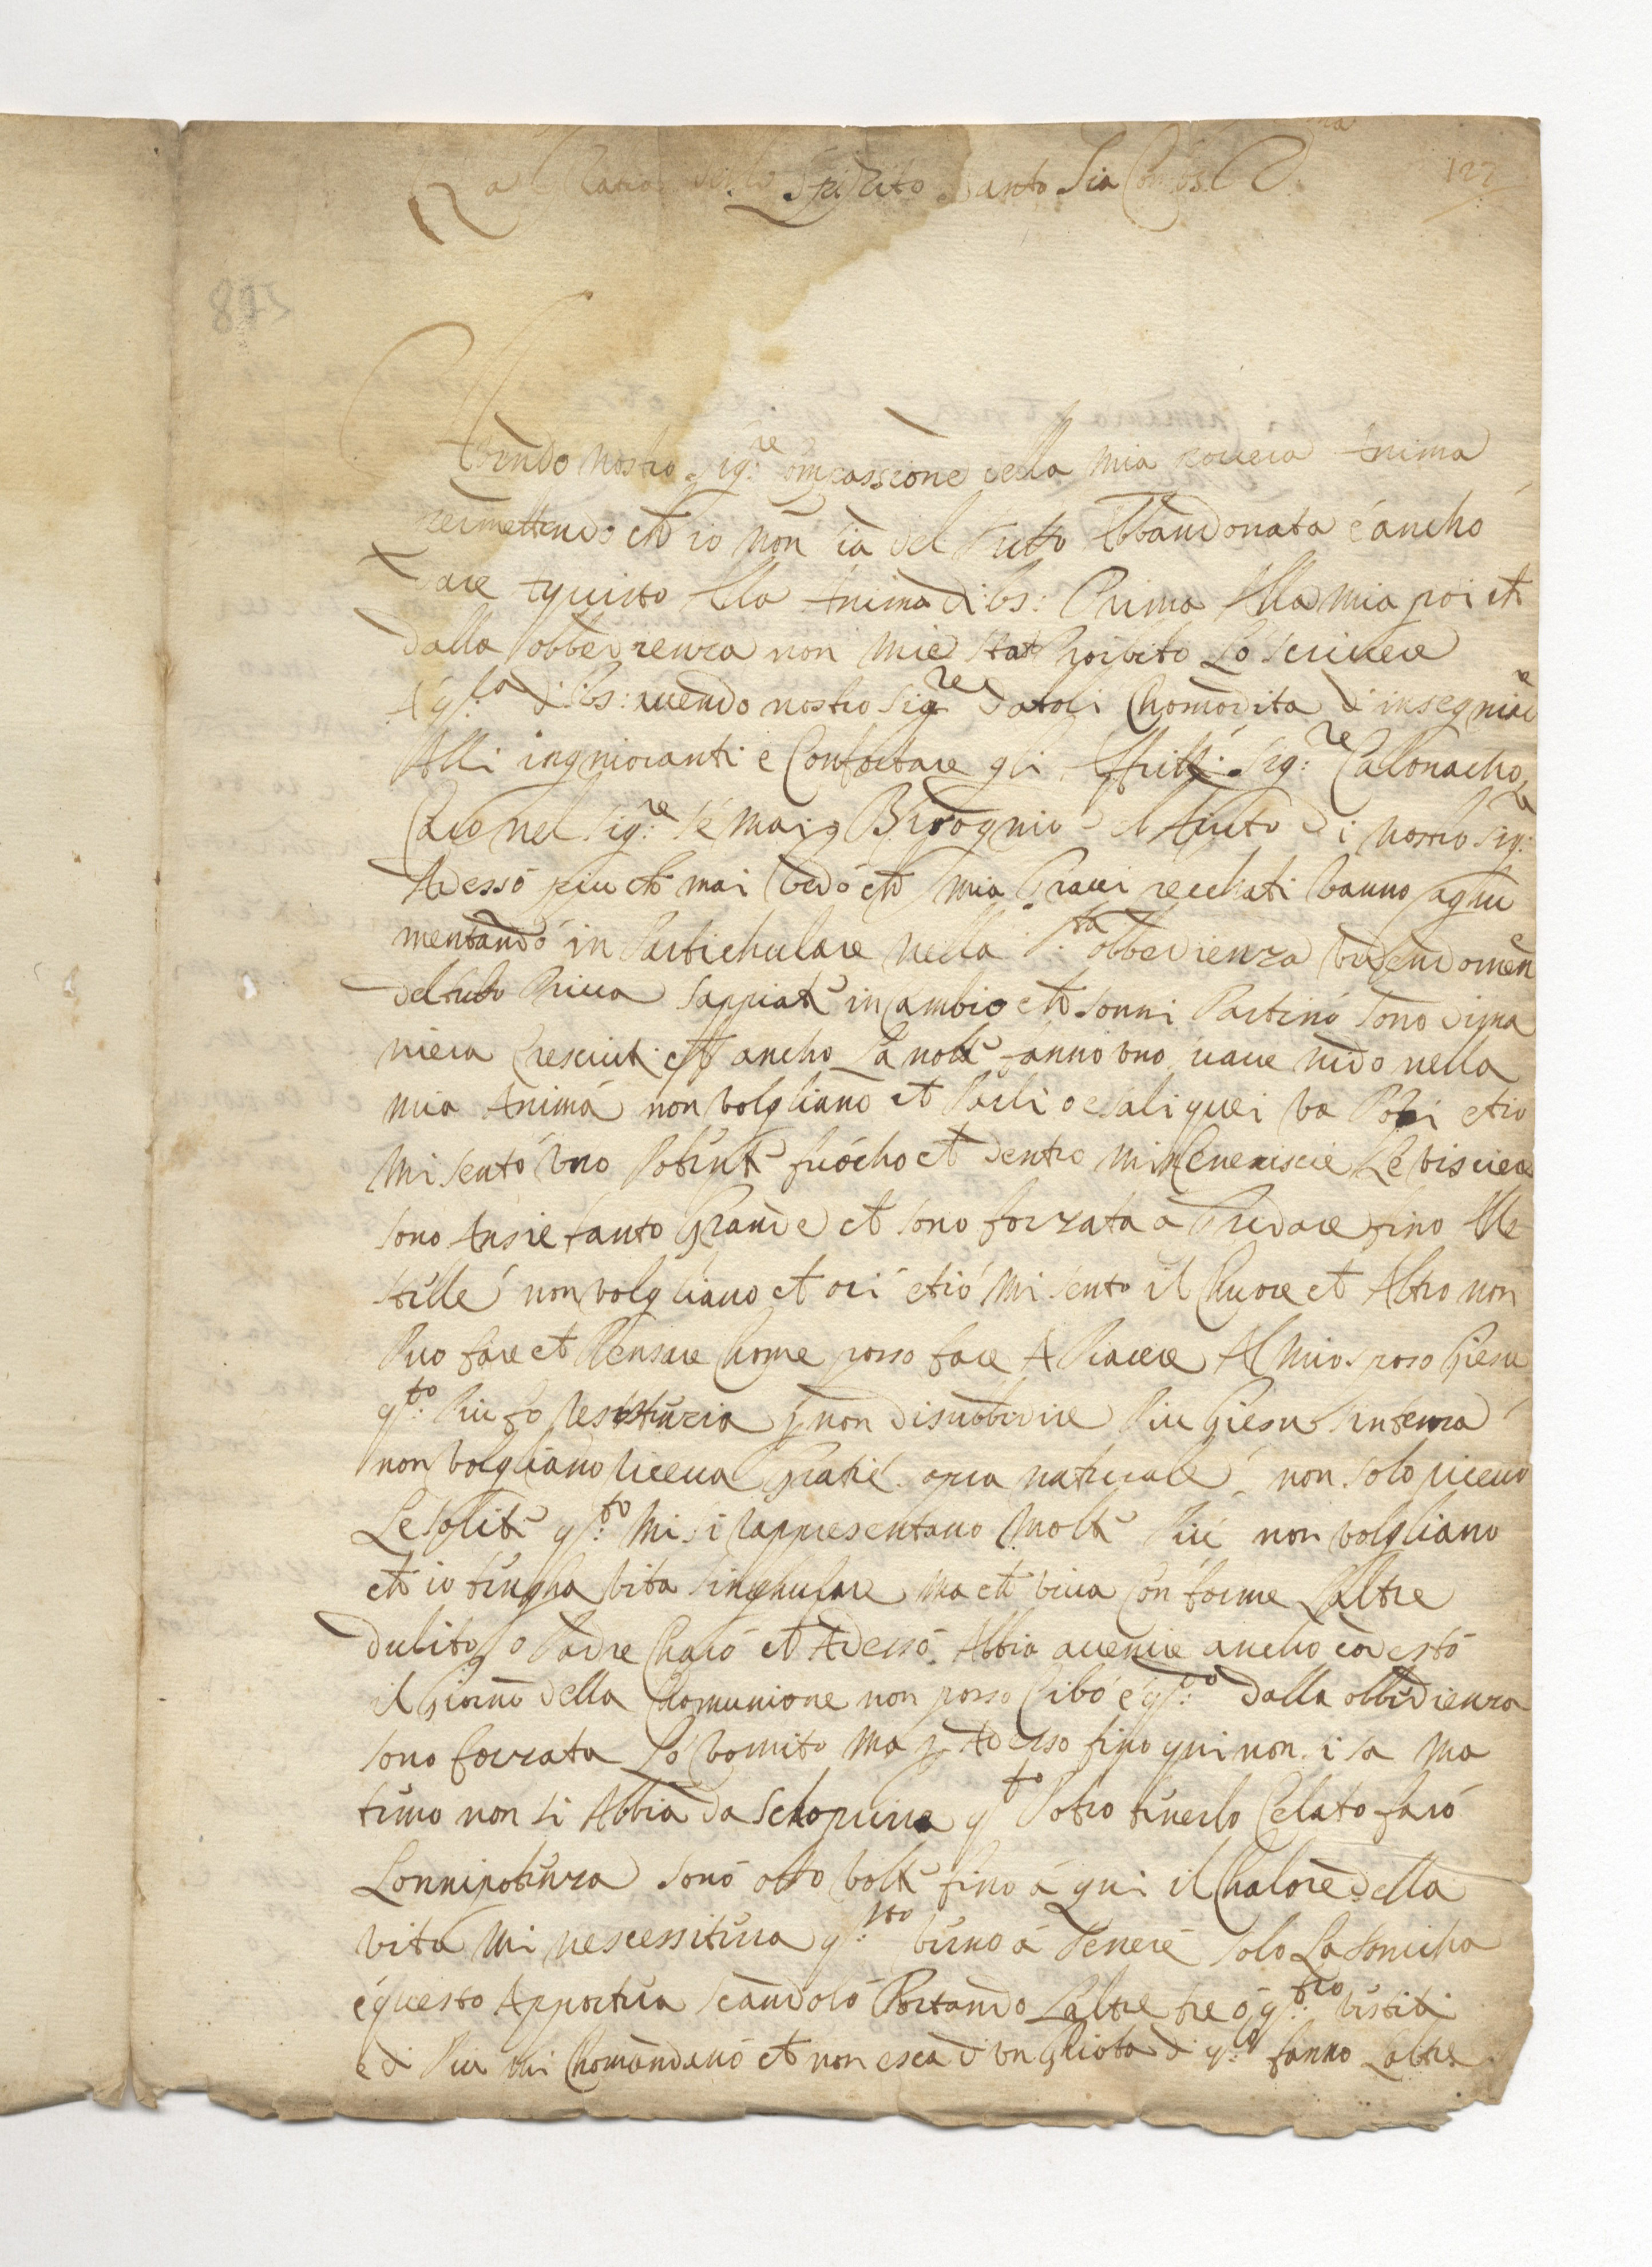 La Gratia dello Spirito Santo Sia Con Vs
127
873
Avendo nostro Sig:re Compassione della mia povera Anima
permettendo che io non sia del tutto Abbandonata e ancho
dare Aquisto Alla Anima di Vs: Prima Alla mia poi che
dalla obbedienza non mie stat Proibito Lo scrivere
A q:sto di Vs: avendo nostro Sig:re datoli Chomodita d'insegniare
Alli ingnioranti e Confortare gli Afflitti: Sig:re Calonacho
Caro nel Sig:re se mai o Bisognio di Aiuto di nostro Sig:re
Adesso piu che mai vedo che mia Gravi pecchati vanno agiu
mentando in Partichulare nella S:ta obbedienza vedendomene
del tuto Priva sappiate in Cambio che sonni Partino sono dima
niera Cresciuti che ancho La notte fanno uno nido nella
mia Anima non volgliano che Parli
mi sento uno Potente fuocho che dentro mi Ceneriscie Le visciere
sono Ansie tanto Grande che sono forzata a Gridare fino Alle
stille non volgliano che ori e io mi sento il Chuore che Altro non
Puo fare che Pensare Chome posso fare A Piacere Al mio sposo Giesu
q:to Piu fo Resistenzia p non disubbidire Piu Giesu
non volgliano riceva Gratie sopra naturale non solo ricevo
Le solite q:to mi si rappresentano Molte Piu non volgliano
che io tengha vita singhulare ma che viva Conforme L'altre
dubito o Padre Charo che Adesso Abbia avenire ancho codesto
il Giorno della Chomunione non posso Cibo e q:do dalla obbidienza
sono forzata Lo vomito ma p Adesso fino qui non si sa ma
temo non si Abbia da schoprire q:to Potro tenerlo Celato faro
L'onnipotenza sono otto volte fino a qui il Chalore della
vita mi nescessitava q:sto verno a Tenere solo La tonicha
e questo Apporteva scandolo Portando L'altre tre o q:tro vestiti
e di Piu mi Chomandano che non esca d'un Ghiota di q:lo fanno L'altre